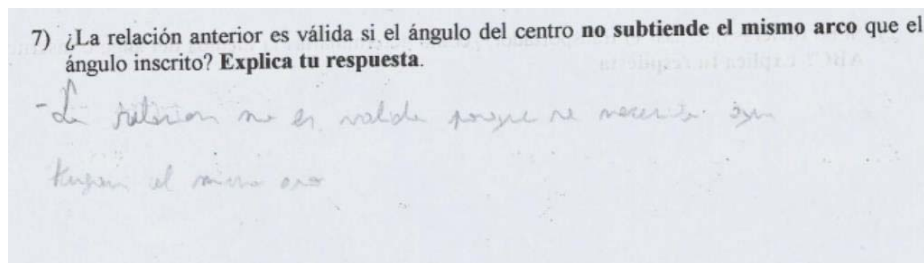 7) ¿La relación anterior es válida si el ángulo del centro no subtiende el mismo arco que el
ángulo inscrito? Explica tu respuesta.
- La relacion no es valida porque se necesita que
tengan el mismo arco